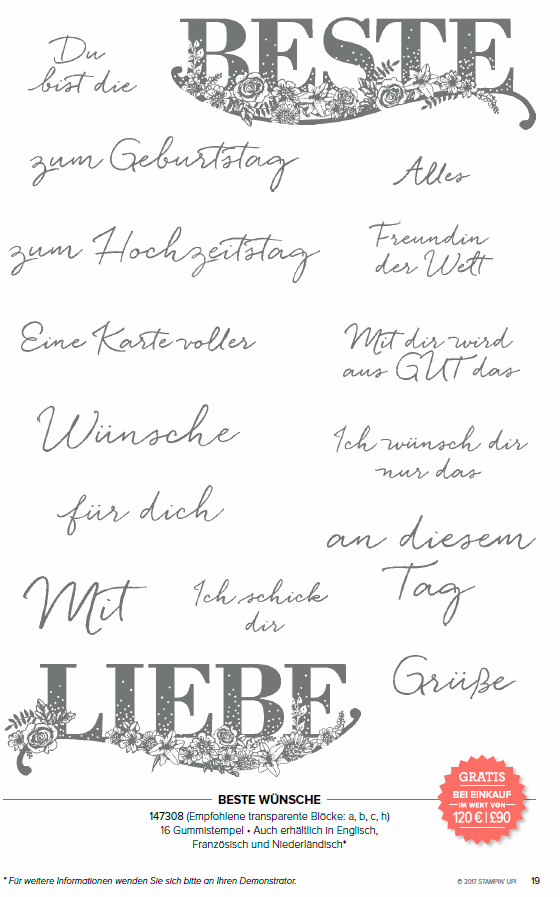 Du
bist die
BESTE
zum Geburtstag
Alles
zum Hochzeitstag
Freundin
der Welt
Eine Karte voller
Mit dir wird
aus GUT das
Wünsche
Ich wünsch dir
nur das
für dich
an diesem
Tag
Mit
Ich schick
dir
LIEBE
Grüße
GRATIS
BEI EINKAUF
IM WERT VON
120 € | £90
BESTE WÜNSCHE
147308 (Empfohlene transparente Blöcke: a, b, c, h)
16 Gummistempel • Auch erhältlich in Englisch,
Französisch und Niederländisch*
* Für weitere Informationen wenden Sie sich bitte an Ihren Demonstrator.
© 2017 STAMPIN' UP! 19